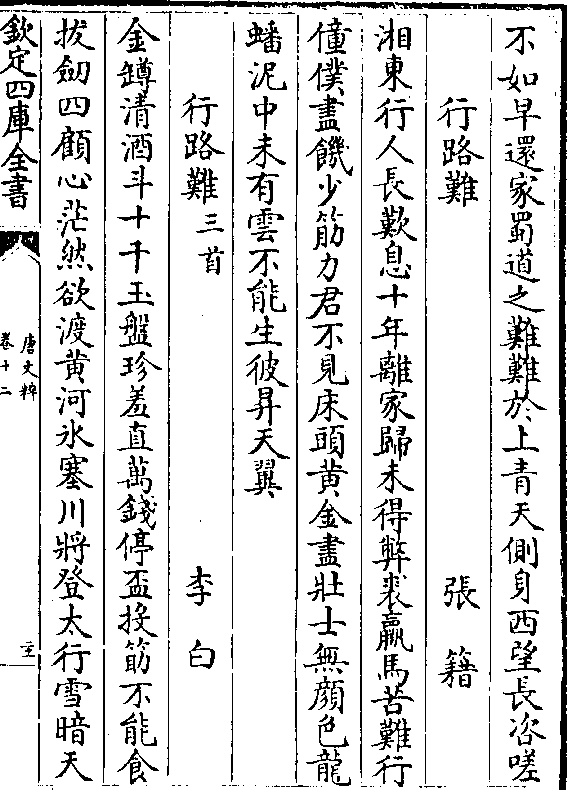 不如早還家蜀道之難難於上青天側身西望長咨嗟
行路難 張籍
湘東行人長歎息十年離家歸未得弊裘羸馬苦難行
僮僕盡饑少筋力君不見床頭黃金盡壯士無顏色龍
蟠泥中未有雲不能生彼昇天翼
行路難三首 李白
金罇清酒斗十千玉盤珍羞直萬錢停盃投筯不能食
拔劒四顧心茫然欲渡黃河氷塞川將登太行雪暗天
欽定四庫全書
唐文粹
卷十二